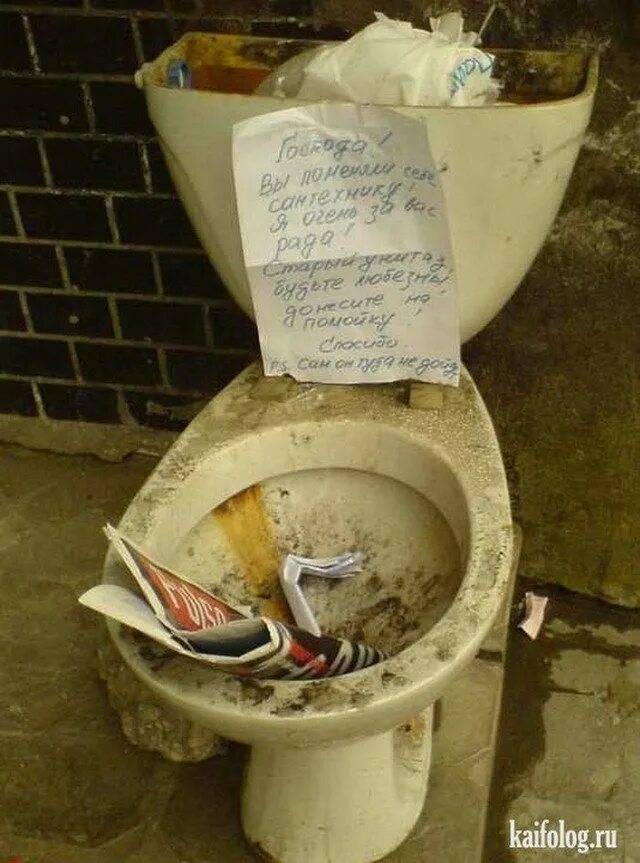 Господа!
Вы поменяли себе
сантехнику!
Я очень за вас
рада!
Старый унитаз
будьте любезны!
донесите на
помойку!
Спосибо.
P.S. Сам он туда не дойд
kaifolog.ru